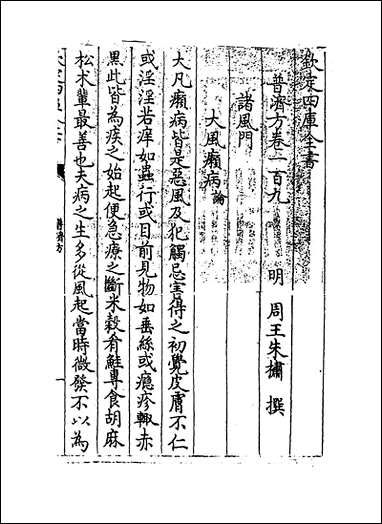 欽定四庫全書
普濟方卷一百九
明 周王朱橚 撰
諸風門
大風癩病論
大凡癩病皆是惡風及犯觸忌害得之初覺皮膚不仁
或淫淫若痒如蟲行或目前見物如垂絲或癮疹輙赤
黒此皆為疾之始起便急療之斷米穀肴鮭專食胡麻
松术軰最善也夫病之生多從風起當時微發不以為
普濟方
一